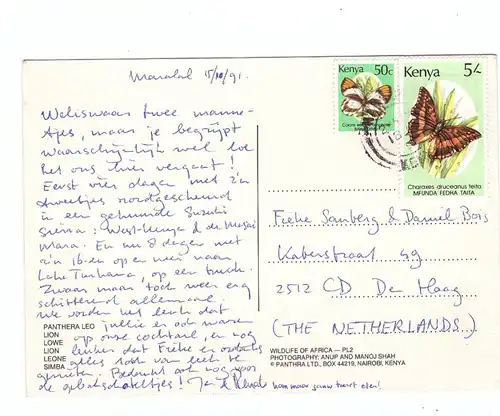 Maralal 15/10/91.
Weliswaar twee manne-
tjes, maar je begrijpt
waarschijnlijk wel hoe
het ons hier vergaat!
Eerst vier dagen met z'n
tweetjes rondgescheurd
in een gehuurde Suzuki
Sierra: West-Kenya & de Masai
Mara. En nu 8 dagen met
z'n 16-en op en neer naar
Lake Turkana, op een truck.
Zwaar maar toch weer erg
schitterend allemaal.
We vonden het leuk dat
jullie er ook waren
op onze cocktail, en nog
leuker dat Frehe en
alles toch van te
genieten. Bedankt ook nog voor
de opbostschoteltjes! Jan &
hom maar jouw taart eten!
PANTHERA LEO
LION
LOWE
LION
LEONE
SIMBA
WILDLIFE OF AFRICA — PL2
PHOTOGRAPHY: ANUP AND MANOJ SHAH
© PANTHRA LTD., BOX 44219, NAIROBI, KENYA
Kenya 50c
Kenya 5/-
Charaxes druceanus teita
MFUNDA FEDHA TAITA
Frehe Sanberg & Daniel Bois
Kaberstraat 49
2512 CD Den Haag
(THE NETHERLANDS)